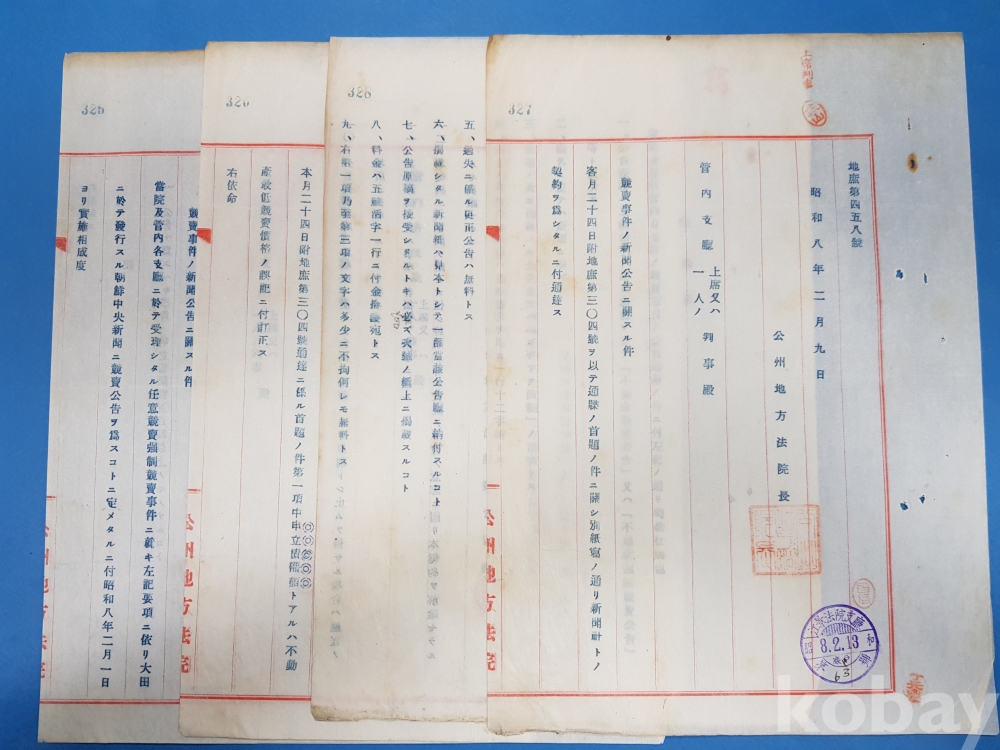 327
地庶第四五八號
昭和八年二月九日
公州地方法院長
管内支廳 上席又ハ一人ノ 判事殿
競賣事件ノ新聞公告ニ關スル件
客月二十四日附地庶第三〇四號ヲ以テ通牒ノ首題ノ件ニ關シ別紙寫ノ通リ新聞社トノ
契約ヲ爲シタルニ付通達ス
8.2.13
328
五、過失ニ係ル更正公告ハ無料トス
六、掲載シタル新聞紙ハ見本トシテ一部當該公告廳ニ納付スルコト
七、公告原稿ヲ接受シタルトキハ必ズ次號ノ紙上ニ掲載スルコト
八、料金ハ五號活字一行ニ付金拾錢宛トス
九、右第一項乃至第三項ノ文字ハ多少ニ不拘何レモ無料トス
326
本月二十四日附地庶第三〇四號通達ニ係ル首題ノ件第一項中申立債權額トアルハ不動
産最低競賣價格ノ誤記ニ付訂正ス
右依命
公州地方法院
325
競賣事件ノ新聞公告ニ關スル件
當院及管内各支廳ニ於テ受理シタル任意競賣強制競賣事件ニ就キ左記要項ニ依リ大田
ニ於テ發行スル朝鮮中央新聞ニ競賣公告ヲ爲スコトニ定メタルニ付昭和八年二月一日
ヨリ實施相成度
公州地方法院
kobay